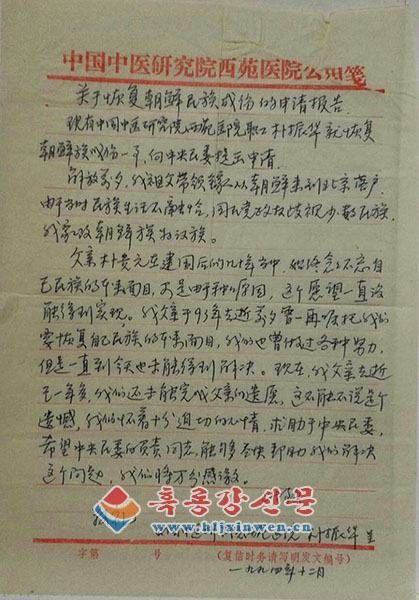 中国中医研究院西苑医院公用笺
关于恢复朝鲜民族成份的申请报告
现有中国中医研究院西苑医院职工朴振华就恢复
朝鲜族成份一事,向中央民委提出申请.
解放前夕,我祖父带领家人从朝鲜来到北京落户.
由于当时民族生活不
国民党政权歧视少数民族,
我家改朝鲜族为汉族。
父亲朴
元在建国后的几十年当中,始终念念不忘自
己民族的本来面目,只是由于种种原因,这个愿望一直没
能得到实现。我父亲于93年去逝前夕曾一再叮嘱我们
要恢复自己民族的本来面目,我们也曾做过各种努力,
但是一直到今天也未能得到解决。现在,我父亲去逝
已一年多,我们还未能完成父亲的遗愿,这不能不说是个
遗憾,我们怀着十分迫切的心情,求助于中央民委,
希望中央民委的负责同志,能够尽快帮助我们解决
这个问题,我们将万分感激。
医院 朴振华 呈
黑龙江新闻
www.hljxinwen.cn
字第 号 (复信时务请写明发文编号)
一九九四年十二月